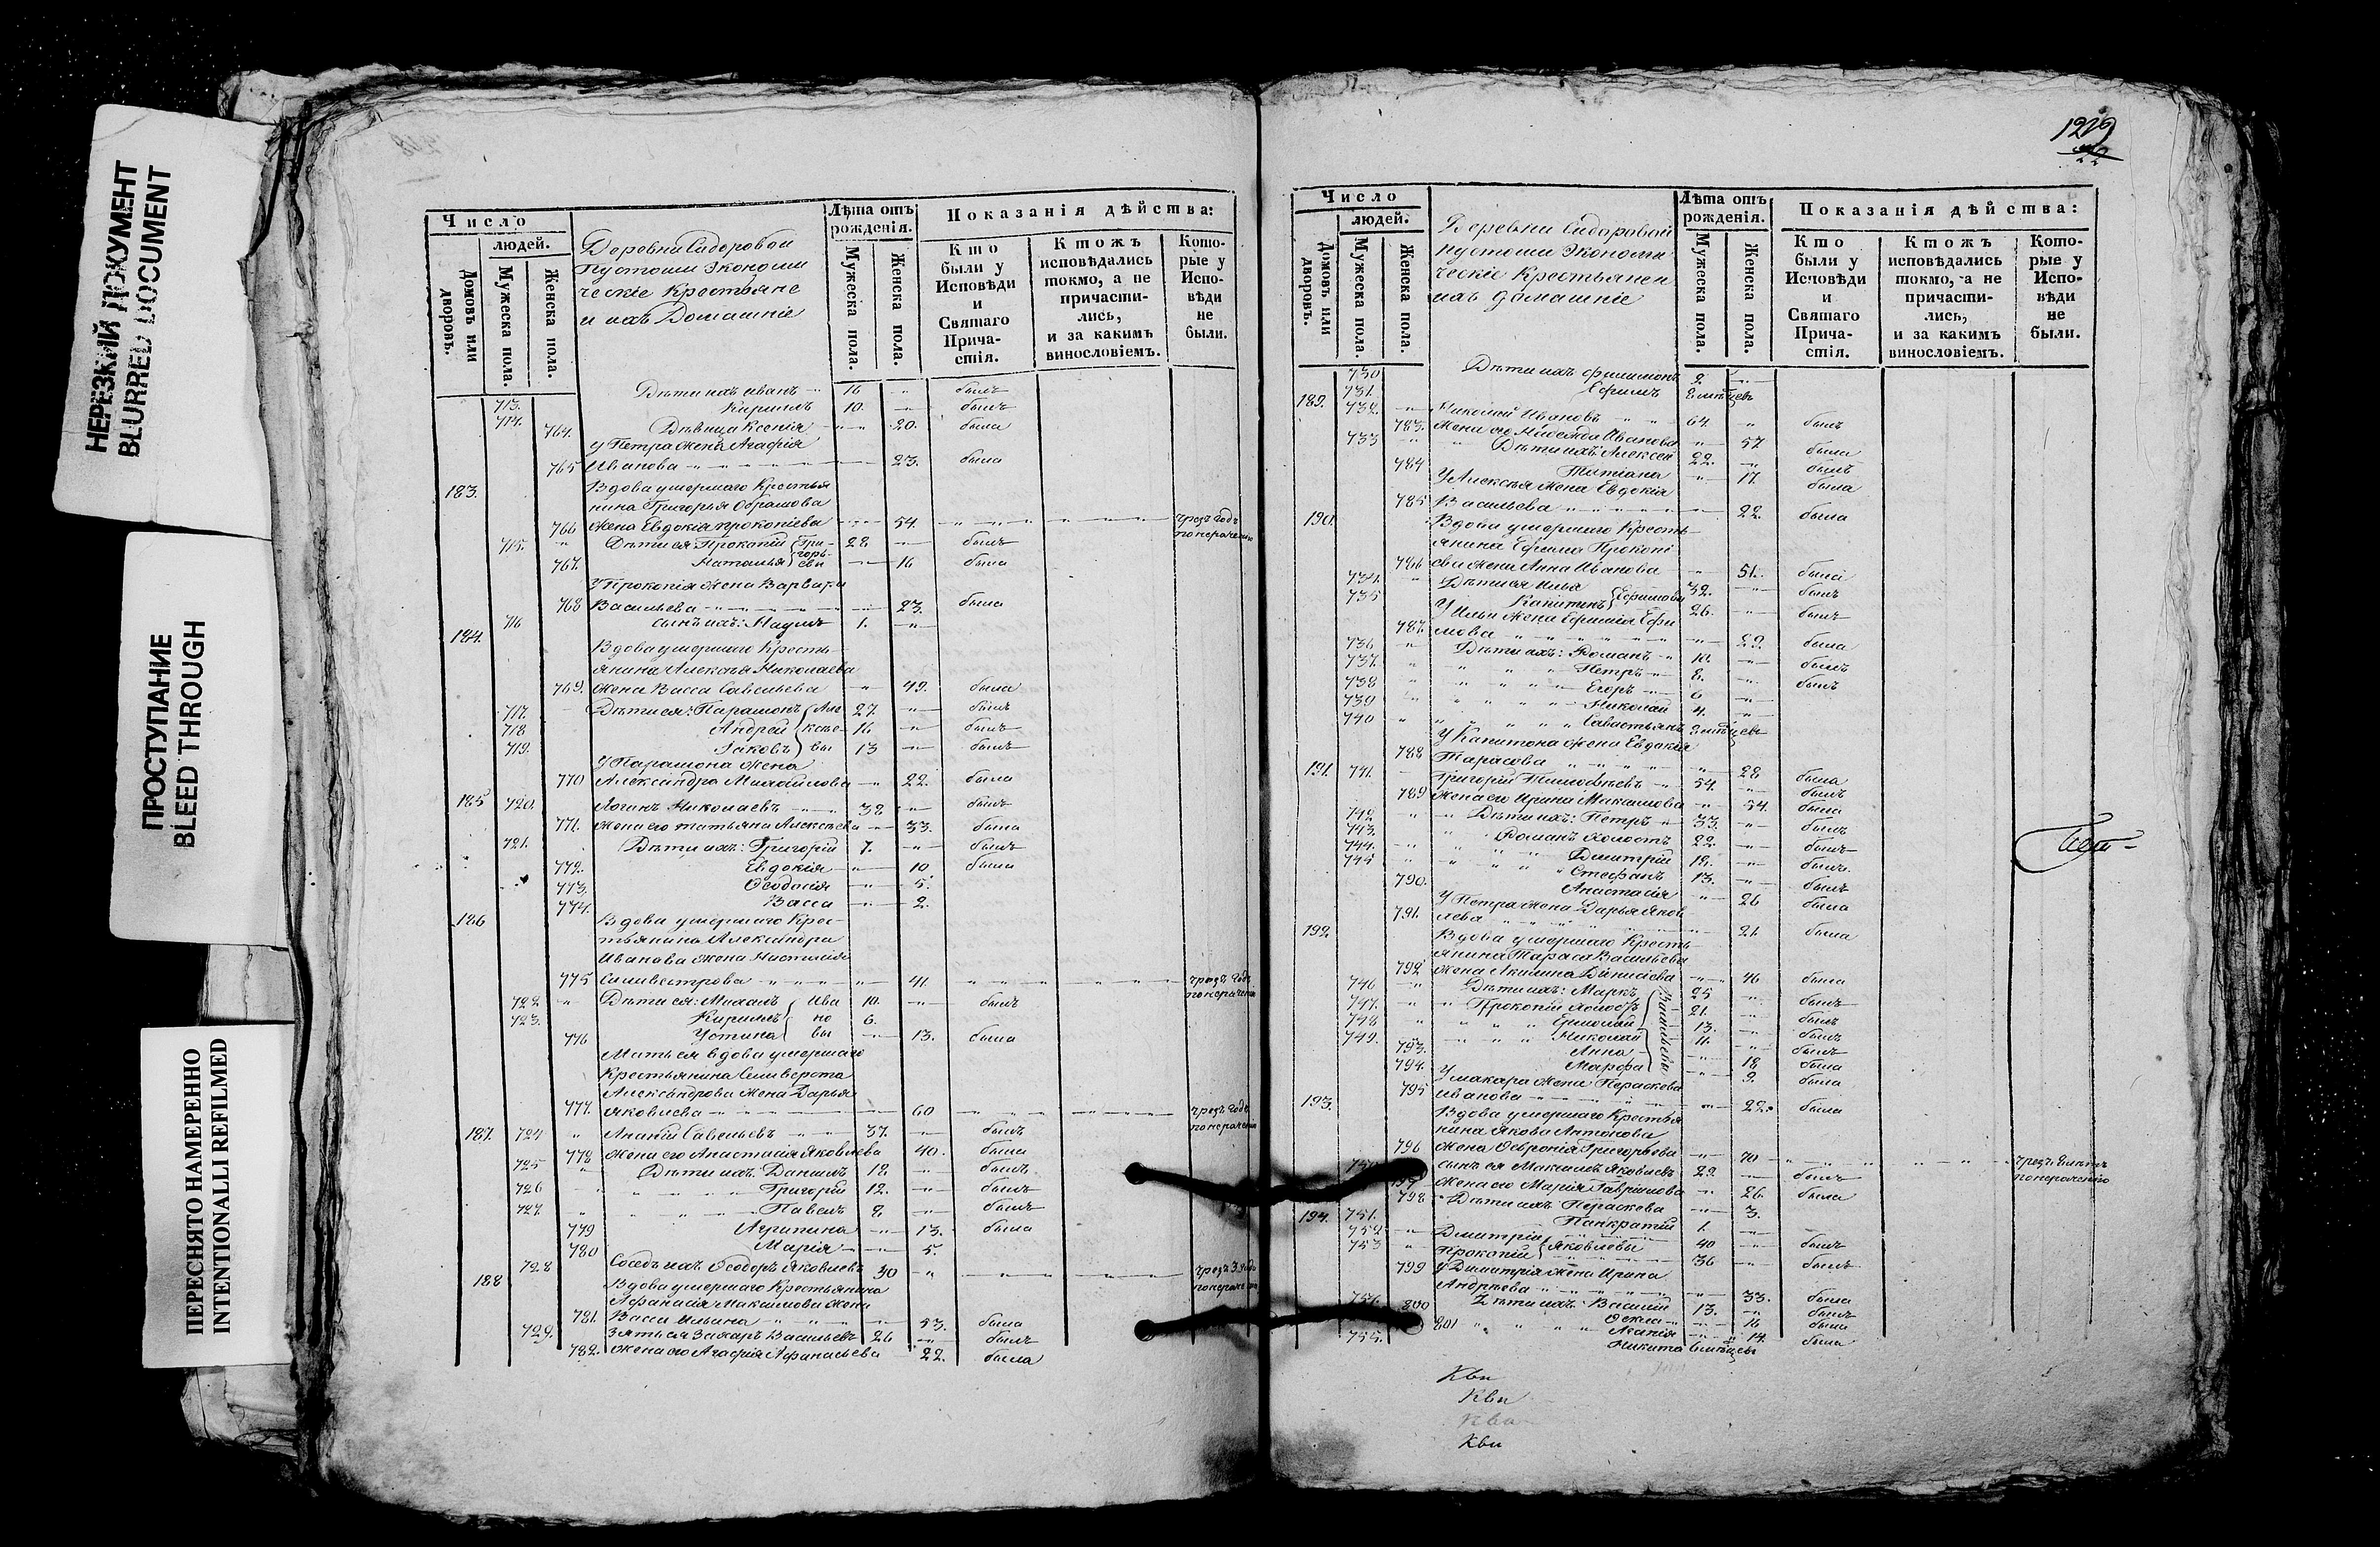 НЕРЕЗКИЙ ДОКУМЕНТ
BLURRED DOCUMENT
ПРОСТУПАНИЕ
BLEED THROUGH
ПЕРЕСНЯТО НАМЕРЕННО
INTENTIONALLI REFILMED
Число
людей.
Домовъ или дворовъ.
Мужеска пола.
Женска пола.
Деревни Сидоровой
Пустоши Экономи
ческіе Крестьяне
и ихъ Домашніе
Лѣта отъ рожденія.
Мужеска пола.
Женска пола.
Показанія дѣйства:
Кто были у Исповѣди и Святаго Прича- стія.
Ктожъ исповѣдались токмо, а не причасти- лись, и за какимъ винословіемъ.
Кото- рые у Испо- вѣди не были.
713. Дѣти ихъ Иванъ 16 былъ
714. Кирилъ 10. былъ
764. Дѣвица Ксенія 20. была
у Петра жена Агафія
765 Иванова 23. была
183. Вдова умершаго Крестья
нина Григорья Абрамова
766 жена Евдокія Прокопіева 54. чрезъ годъ по нераченію
715. Дѣти ея Прокопій Гри- 28 былъ
767. Наталья горь- еви 16 была
У Прокопія жена Варвара
768 Васильева 23. была
716 сынъ ихъ: Наумъ 1.
184. Вдова умершаго Кресть
янина Алексѣя Николаева
769. жена Васса Савельева 49. была
717. Дѣти ея: Парамонъ Але 27. былъ
718 Андрей ксѣе- 16 былъ
719. Іаковъ вы 13 былъ
У Парамона жена
770 Александра Михайлова 22. была
185 720. Логинъ Николаевъ 38 былъ
771. жена его Татьяна Алексѣева 33. была
721. Дѣти ихъ: Григорій 7. былъ
772. Евдокія 10 была
773. Ѳеодосія 5.
774. Васса 2.
186 Вдова умершаго Крес-
тьянина Александра
Иванова жена Настасія
775 Силивестрова 41. чрезъ годъ по нераченію
722. Дѣти ея: Михаилъ Ива 10. былъ
723. Кирилъ но 6.
776 Устина вы 13. была
Мать ея вдова умершаго
Крестьянина Силиверста
Александрова жена Дарья
777. Яковлева 60 чрезъ годъ по нераченію
187. 724 Ананій Савельевъ 37. былъ
778 жена его Анастасія Яковлева 40. была
725 Дѣти ихъ: Даниилъ 18. былъ
726 Григорій 12. былъ
727. Павелъ 8. былъ
779 Агрипина 13. была
780 Марія 5.
728 Сосѣдъ ихъ Ѳеодоръ Яковлевъ 30 чрезъ 3 года по нераченію
188 Вдова умершаго Крестьянина
Афанасія Максимова жена
781. Васса Ильина 53. была
729. Зять ея Захаръ Васильевъ 26 былъ
782. жена его Агафія Афанасьева 22. была
1219
22
Число
людей.
Домовъ или дворовъ.
Мужеска пола.
Женска пола.
Деревни Сидоровой
пустоши Экономи
ческіе Крестьяне и
ихъ домашніе
Лѣта отъ рожденія.
Мужеска пола.
Женска пола.
Показанія дѣйства:
Кто были у Исповѣди и Святаго Прича- стія.
Ктожъ исповѣдались токмо, а не причасти- лись, и за какимъ винословіемъ.
Кото- рые у Испо- вѣди не были.
730 Дѣти ихъ Филимонъ 2.
731. Ефимъ 8 мѣсцевъ
189. 732. Николай Ивановъ 64. былъ
783. жена его Надежда Иванова 57 была
733 Дѣти ихъ Алексей 22. былъ
784 Татіана 17. была
У Алексѣя жена Евдокія
785 Васильева 22. была
190. Вдова умершаго Кресть-
янина Ефима Прокопі
786 ева жена Анна Иванова 51. была
734. Дѣти ея Илья 32. былъ
735 Капитонъ Ефимовы 26. былъ
У Ильи жена Ефимія Ефи
787. мова 29. была
736 Дѣти ихъ: Романъ 10. былъ
737. Петръ 8. былъ
738 Егоръ 6
739 Николай 4.
740 Савастьянъ 2 мѣсцевъ
У Капитона жена Евдокія
788 Тарасова 28 была
191. 741. Григорій Тимофѣевъ 54. былъ
789 жена его Ирина Максимова 54. была
742 Дѣти ихъ: Петръ 33. былъ
743. Романъ холостъ 22. былъ
744. Дмитрій 18. былъ
745 Стефанъ 13. былъ
790. Анастасія 26 была
У Петра жена Дарья Яков
791. лева 21. была
192. Вдова умершаго Кресть-
янина Тараса Васильева
792 жена Акилина Денисіева 46 была
746 Дѣти ихъ: Маркъ 25 былъ
747. Прокопій холостъ 21. былъ
748 Ермолай 13. былъ
749. Николай 11. былъ
793. Анна 18 была
794. Марфа 9. была
У макара жена Пераскева
795 Иванова 22. была
193. Вдова умершаго Крестья
нина Якова Антонова
796 жена Ѳевронія Григорьева 70
750 сынъ ея Максимъ Яковлевъ 29. былъ
797 жена его Марія Гавріилова 26. была
798 Дѣти ихъ Пераскева 3.
751. Панкратій 1.
194. 752 Димитрій Яковлевы 40 былъ
753 Прокопій 36 былъ
799 у Димитрія жена Ирина
Андрѣева 33. была
754. Дѣти ихъ: Василій 13. былъ
800 16 была
801 14. была
755. Никита 6 мѣсцевъ